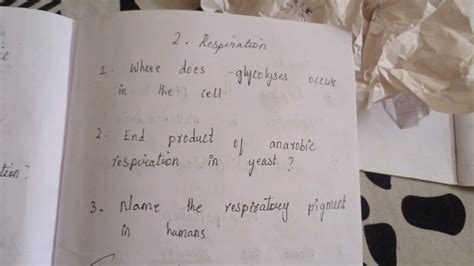 2. Respiration
1. Where does glycolyses occur
in the cell
2. End product of anarobic
respiration in yeast ?
3. Name the respiratory pigment
in humans